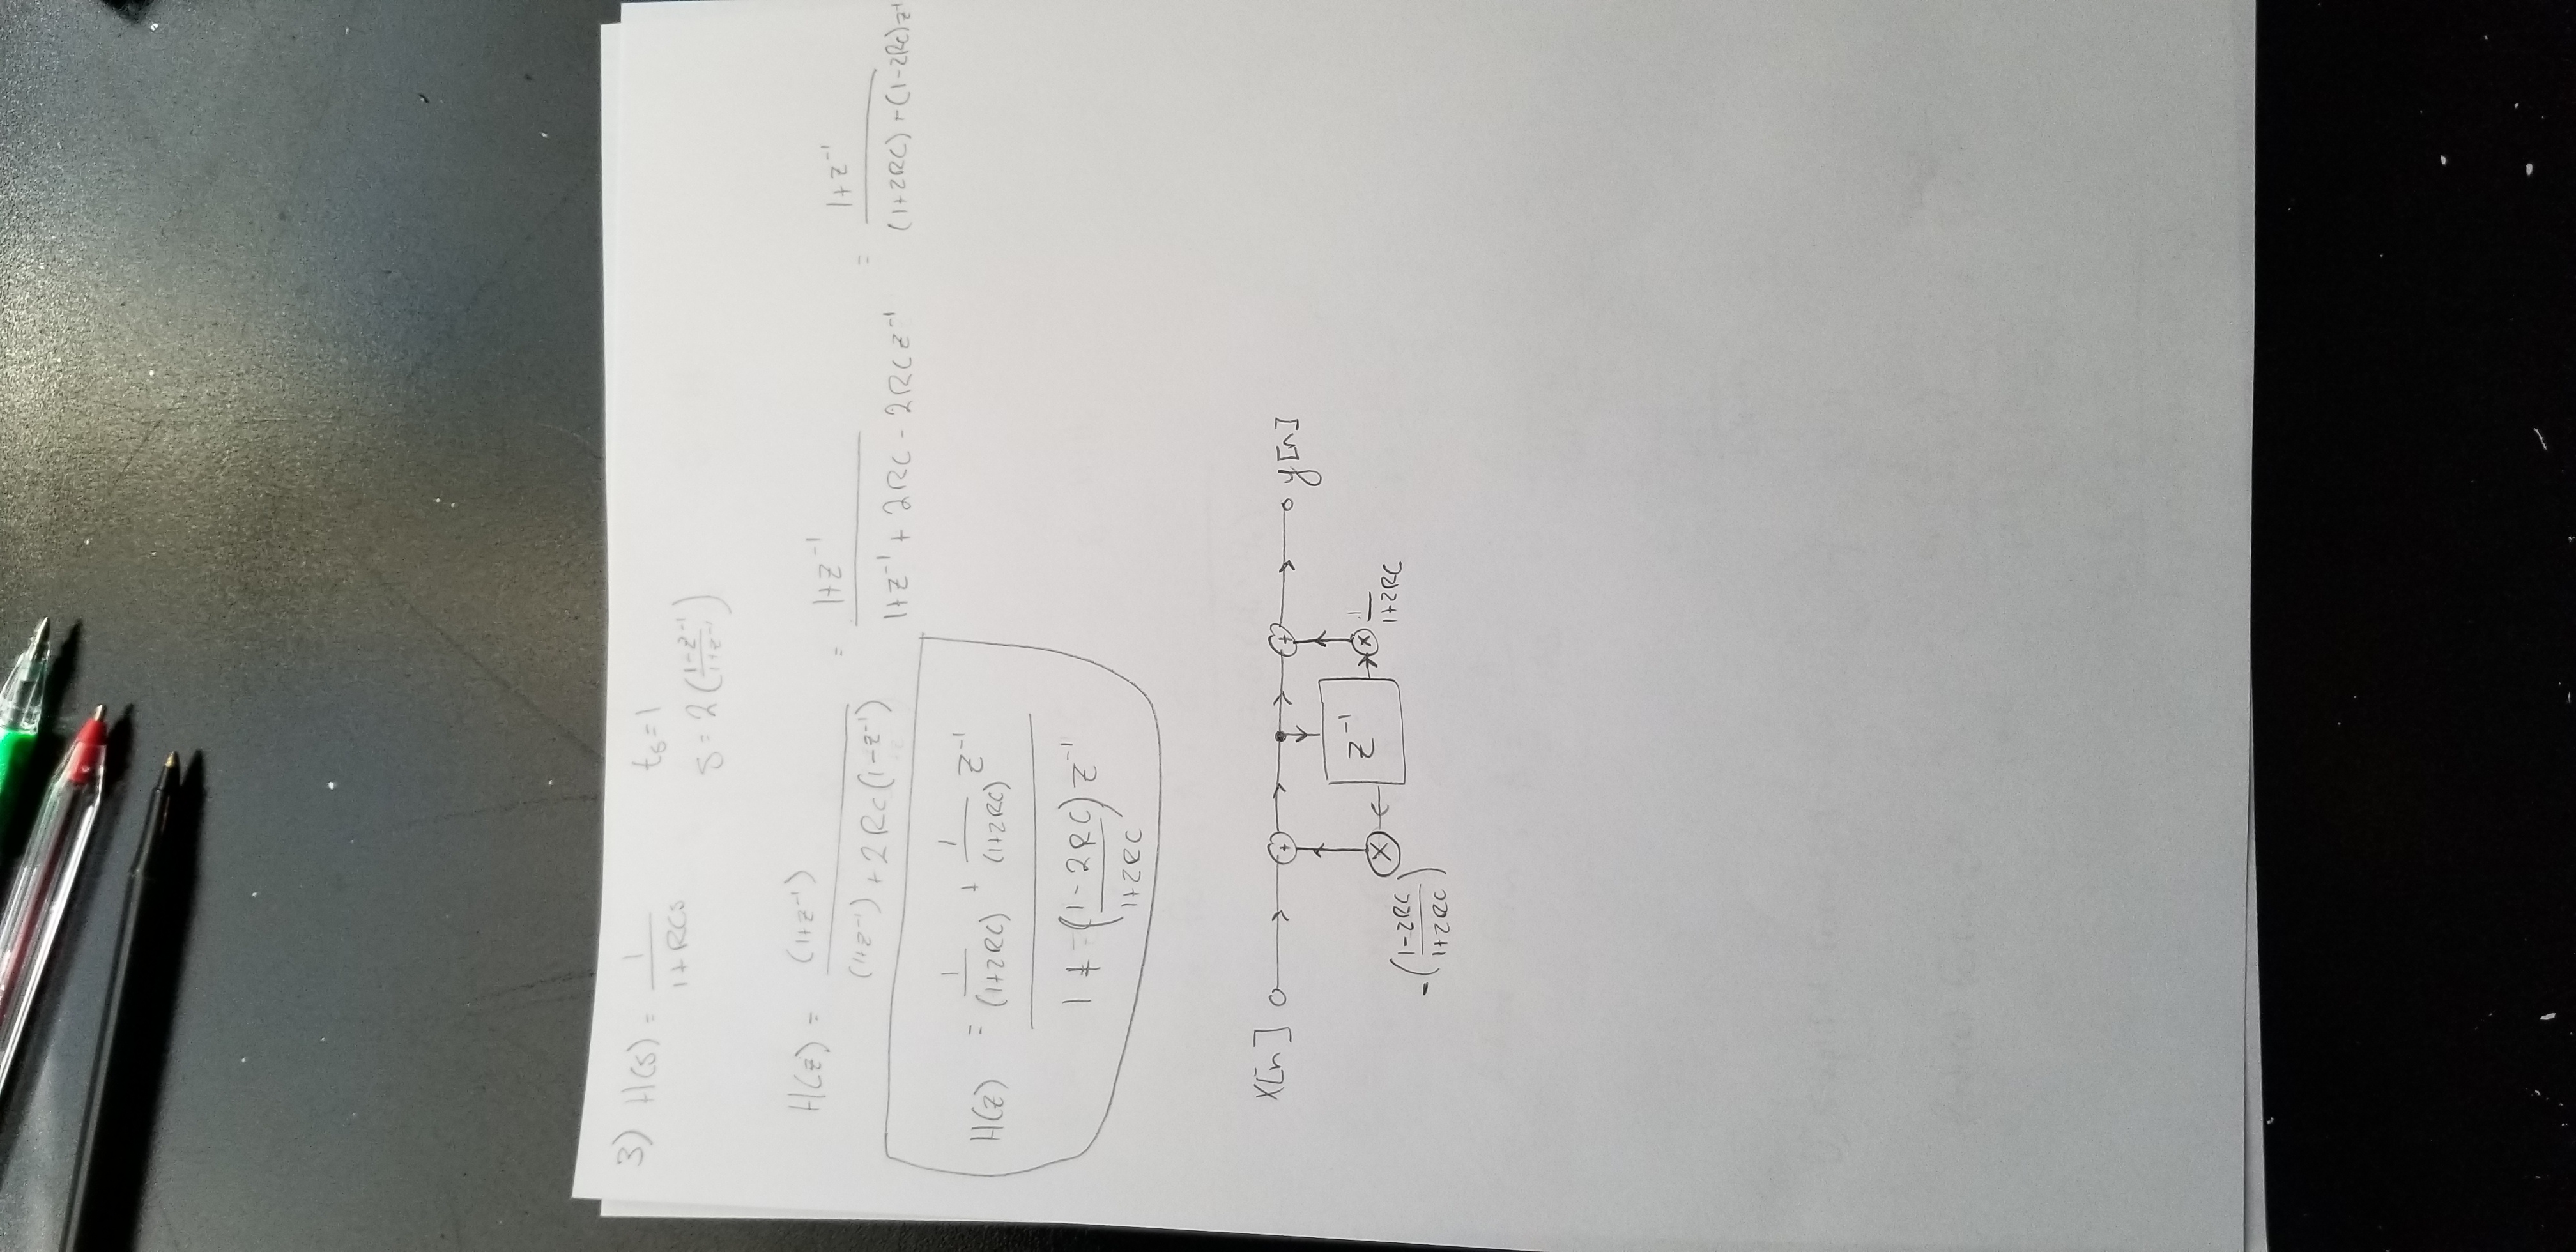 3) H(s) = 1/(1+RCs)    t_s=1
s = 2((1-z^-1)/(1+z^-1))
H(z) = (1+z^-1)/((1+z^-1)+2RC(1-z^-1)) = (1+z^-1)/(1+z^-1+2RC-2RCz^-1) = (1+z^-1)/((1+2RC)+(1-2RC)z^-1)
H(z) = (1/(1+2RC) + 1/(1+2RC) z^-1)/(1 + ((1-2RC)/(1+2RC)) z^-1)
X[n] + + y[n]
× z^-1 × 1/(1+2RC)
-((1-2RC)/(1+2RC))